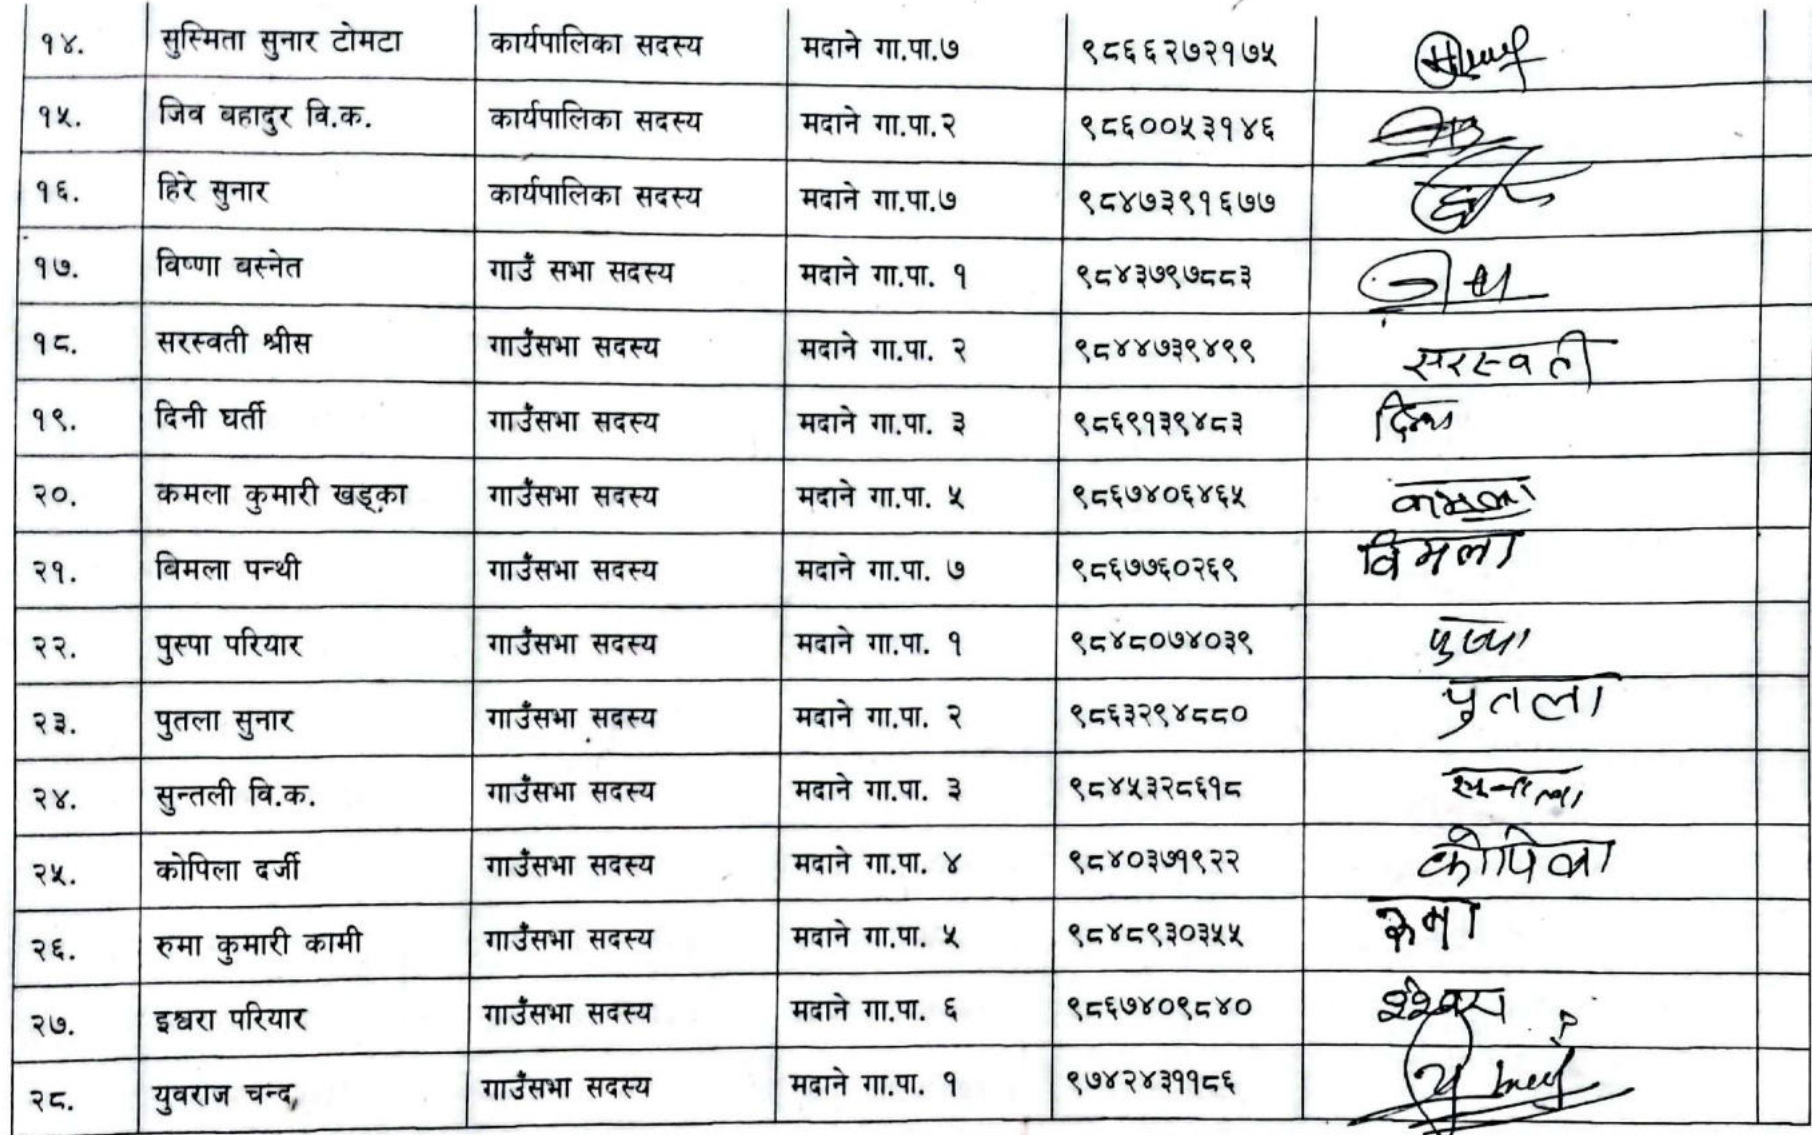 १४. सुस्मिता सुनार टोमटा कार्यपालिका सदस्य मदाने गा.पा.७ ९८६६२७२१७५
१५. जिव बहादुर वि.क. कार्यपालिका सदस्य मदाने गा.पा.२ ९८६००५३१४६
१६. हिरे सुनार कार्यपालिका सदस्य मदाने गा.पा.७ ९८४७३९१६७७
१७. विष्णा बस्नेत गाउँ सभा सदस्य मदाने गा.पा. १ ९८४३७९७८८३
१८. सरस्वती श्रीस गाउँसभा सदस्य मदाने गा.पा. २ ९८४४७३९४९९ सरस्वती
१९. दिनी घर्ती गाउँसभा सदस्य मदाने गा.पा. ३ ९८६९१३९४८३
२०. कमला कुमारी खड्का गाउँसभा सदस्य मदाने गा.पा. ५ ९८६७४०६४६५ कमला
२१. बिमला पन्थी गाउँसभा सदस्य मदाने गा.पा. ७ ९८६७७६०२६९ विमला
२२. पुस्पा परियार गाउँसभा सदस्य मदाने गा.पा. १ ९८४८०७४०३९
२३. पुतला सुनार गाउँसभा सदस्य मदाने गा.पा. २ ९८६३२९४८८० पुतला
२४. सुन्तली वि.क. गाउँसभा सदस्य मदाने गा.पा. ३ ९८४५३२८६१८
२५. कोपिला दर्जी गाउँसभा सदस्य मदाने गा.पा. ४ ९८४०३७१९२२ कोपिला
२६. रुमा कुमारी कामी गाउँसभा सदस्य मदाने गा.पा. ५ ९८४८९३०३५५ रुमा
२७. इश्वरा परियार गाउँसभा सदस्य मदाने गा.पा. ६ ९८६७४०९८४०
२८. युवराज चन्द गाउँसभा सदस्य मदाने गा.पा. १ ९७४२४३११८६